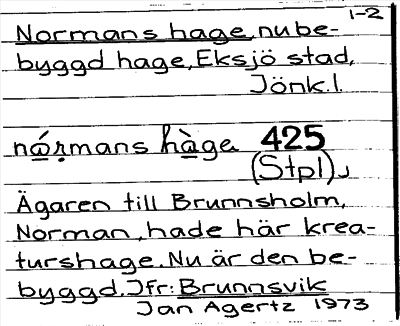 1-2
Normans hage, nube-
byggd hage, Eksjö stad,
Jönk.l.
nórmans hàge 425
(Stpl)
Ägaren till Brunnsholm,
Norman, hade här krea-
turshage. Nu är den be-
byggd. Jfr: Brunnsvik
Jan Agertz 1973